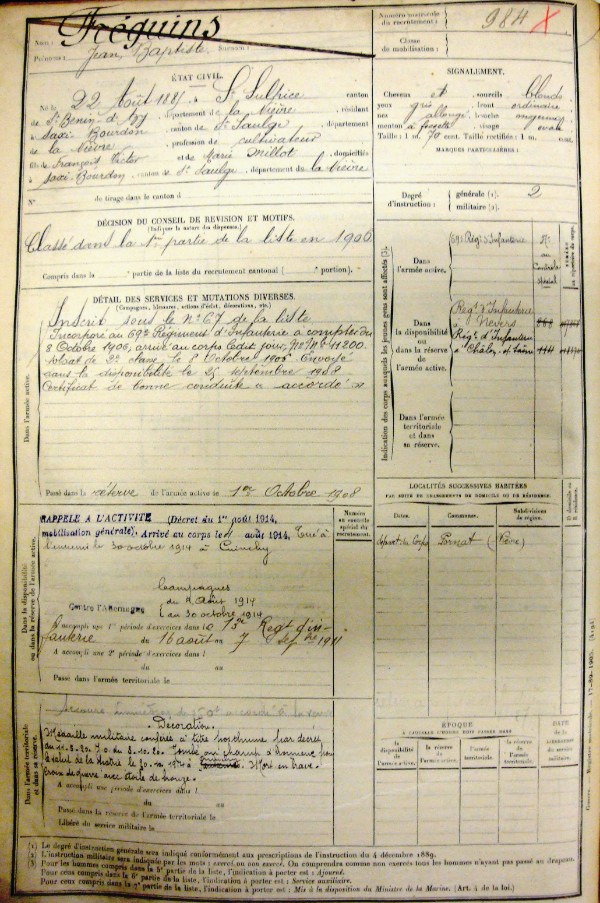 Nom : Fréguins
Prénoms : Jean Baptiste Surnoms :
Numéro matricule du recrutement : 984
Classe de mobilisation :
ÉTAT CIVIL.
Né le 22 Août 1885, à St Sulpice canton
de St Benin-d'Azy, département de la Nièvre, résidant
à Saxi-Bourdon canton de St Saulge, département
de la Nièvre profession de cultivateur
fils de François Victor et de Marie Millot domiciliés
à Saxi-Bourdon, canton de St Saulge, département de la Nièvre
N° de tirage dans le canton d
SIGNALEMENT.
Cheveux et sourcils blonds
yeux gris front ordinaire
nez allongé bouche moyenne
menton à fossette visage ovale
Taille : 1 m. 70 cent. Taille rectifiée : 1 m. cent.
MARQUES PARTICULIÈRES :
Degré d'instruction : générale (1). 2
militaire (2).
DÉCISION DU CONSEIL DE REVISION ET MOTIFS.
(Indiquer la nature des dispenses.)
Classé dans la 1re partie de la liste en 1906
Compris dans la e partie de la liste du recrutement cantonal ( e portion).
DÉTAIL DES SERVICES ET MUTATIONS DIVERSES.
(Campagnes, blessures, actions d'éclat, décorations, etc.)
Dans l'armée active.
Inscrit sous le N° 67 de la liste
Incorporé au 69e Régiment d'Infanterie à compter du
8 Octobre 1906, arrivé au corps ledit jour, Nº Mle 11200.
soldat de 2e classe le 8 Octobre 1906 Envoyé
dans la disponibilité le 25 septembre 1908
Certificat de bonne conduite « accordé »
Passé dans la réserve de l'armée active le 1er Octobre 1908
Indication des corps auxquels les jeunes gens sont affectés (3).
Dans l'armée active.
69e Rég. d'Infanterie
Dans la disponibilité ou dans la réserve de l'armée active.
Régt d'Infanterie
à Nevers
Régt d'Infanterie
à Châlon s/ Saône
Dans l'armée territoriale et dans sa réserve.
LOCALITÉS SUCCESSIVES HABITÉES
PAR SUITE DE CHANGEMENTS DE DOMICILE OU DE RÉSIDENCE.
Dates. Communes. Subdivisions de région. D domicile ou R résidence.
départ du Corps (Nièvre)
Dans la disponibilité ou dans la réserve de l'armée active.
Numéro au contrôle spécial du recrutement.
RAPPELÉ A L'ACTIVITÉ (Décret du 1er août 1914,
mobilisation générale). Arrivé au corps le 4 août 1914, Tué à
l'ennemi le 30 octobre 1914 à Cuinchy
Campagnes
Contre l'Allemagne du 4 Août 1914
au 30 octobre 1914
A accompli une 1re période d'exercices dans le 13e Régt d'in-
fanterie du 16 août au 7 Sepbre 1911
A accompli une 2e période d'exercices dans l
du au
Passé dans l'armée territoriale le
Dans l'armée territoriale et dans sa réserve.
Secours
Décoration.
Médaille militaire conférée à titre posthume par décret
Tombé au champ d'honneur pour
le salut de la Patrie le 30.10.1914 à Mort en brave.
Croix de guerre avec étoile de bronze.
A accompli une période d'exercices dans l
du au
Passé dans la réserve de l'armée territoriale le
Libéré du service militaire le
ÉPOQUE
À LAQUELLE L'HOMME DOIT PASSER DANS
la disponibilité de l'armée active. la réserve de l'armée active. l'armée territoriale. la réserve de l'armée territoriale.
DATE DE LA LIBÉRATION du service militaire.
(1) Le degré d'instruction générale sera indiqué conformément aux prescriptions de l'instruction du 4 décembre 1889.
(2) L'instruction militaire sera indiquée par les mots : exercé ou non exercé. On comprendra comme non exercés tous les hommes n'ayant pas passé au drapeau.
(3) Pour les hommes compris dans la 5e partie de la liste, l'indication à porter est : Ajourné.
Pour ceux compris dans la 6e partie de la liste, l'indication à porter est : Service auxiliaire.
Pour ceux compris dans la 7e partie de la liste, l'indication à porter est : Mis à la disposition du Ministre de la Marine. (Art. 4 de la loi.)